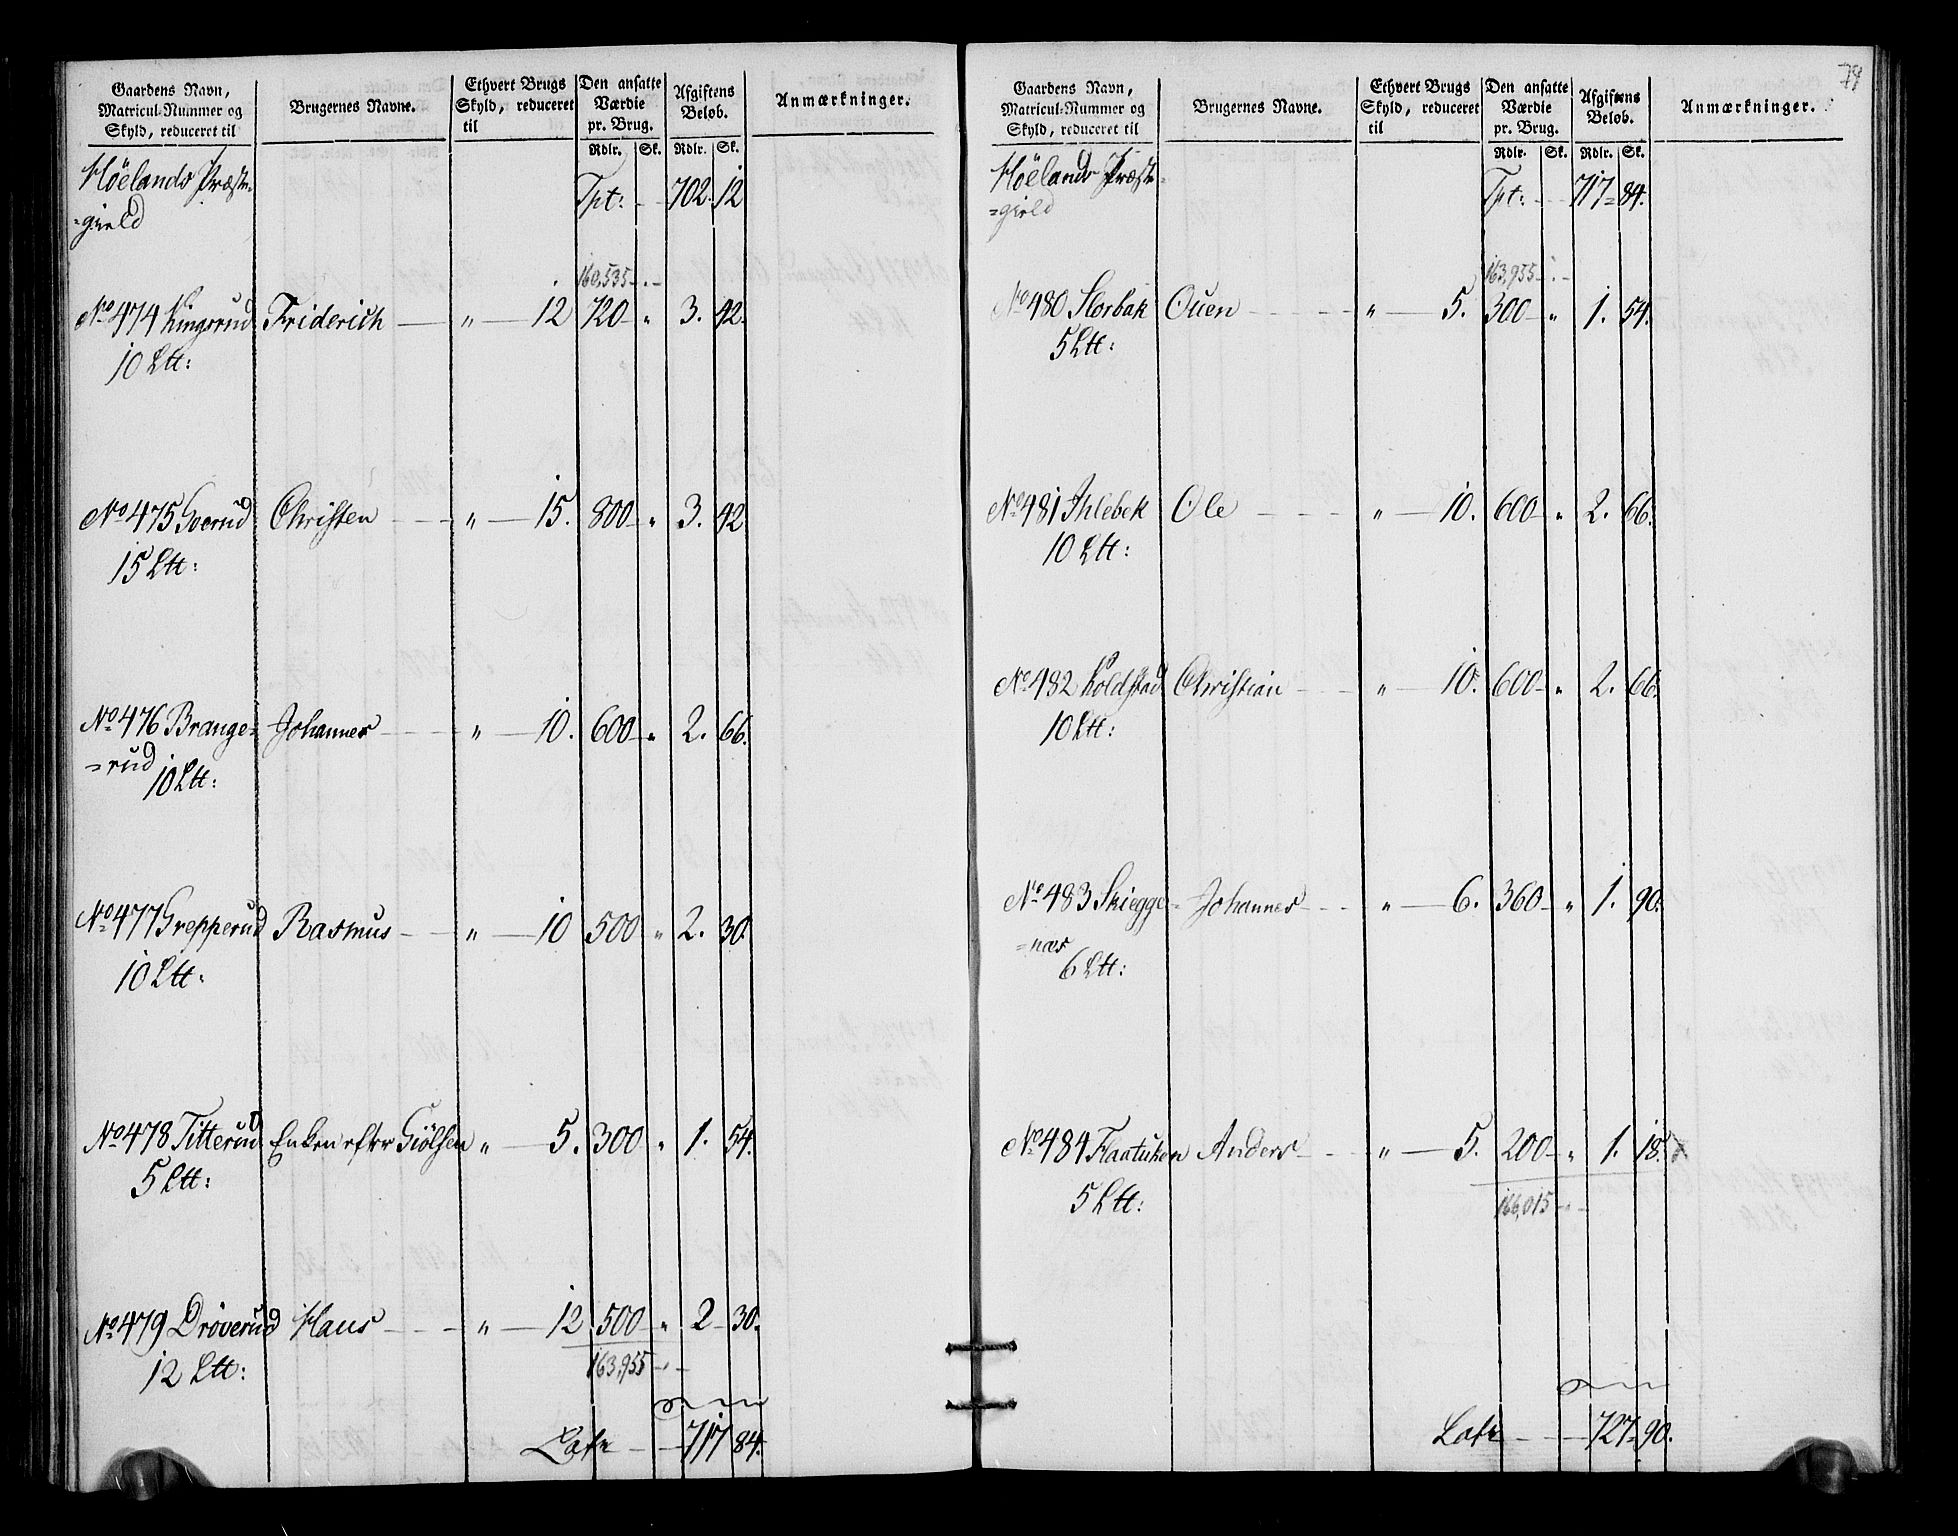 Gaardens Navn, Matricul-Nummer og Skyld, reduceret til | Brugernes Navne. | Ethvert Brugs Skyld, reduceret til | Den ansatte Værdie pr. Brug. | Afgiftens Belöb. | Anmærkninger.
Rdlr. Sk. Rdlr. Sk.
Höelands Præste= Tpt: 702. 12
=gield
160,535
No 474 Kingsrud Friderich " 12 720 " 3. 42.
10 Ltt:
No 475 Goerud Christen " 15. 800 " 3. 42
15 Ltt:
No 476 Brange= Johannes " 10. 600 " 2. 66.
=rud
10 Ltt:
No 477 Grepperud Rasmus " 10 500 " 2. 30.
10 Ltt:
No 478 Titterud Enken efter Giölsen " 5. 300 " 1. 54.
5 Ltt:
No 479 Dröverud Hans " 12 500 " 2 30.
12 Ltt:
163,955
Late 717 84.
79
Gaardens Navn, Matricul-Nummer og Skyld, reduceret til | Brugernes Navne. | Ethvert Brugs Skyld, reduceret til | Den ansatte Værdie pr. Brug. | Afgiftens Belöb. | Anmærkninger.
Rdlr. Sk. Rdlr. Sk.
Höelands Præste= Tpt: 717 84.
=gield
163,955
No 480 Slorbak Ouen " 5. 300 " 1. 54.
5 Ltt:
No 481 Ihlebek Ole " 10. 600 " 2. 66.
10 Ltt:
No 482 Koldstad Christian " 10. 600 " 2. 66.
10 Ltt:
No 483 Skiegge= Johannes " 6. 360 " 1. 90.
=næs
6 Ltt:
No 484 Flaatuken Anders " 5. 200 " 1. 18.
5 Ltt:
166,015
Late 727 90.